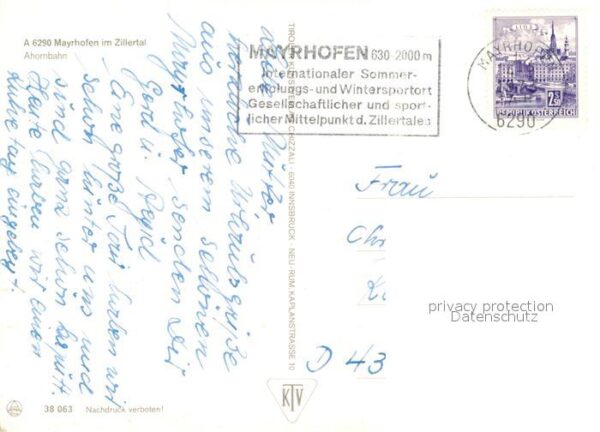 A 6290 Mayrhofen im Zillertal
Ahornbahn
MAYRHOFEN 630-2000m
Internationaler Sommer-
erholungs- und Wintersportort
Gesellschaftlicher und sport-
licher Mittelpunkt d. Zillertales
MAYRHOFEN
6290
REPUBLIK ÖSTERREICH
Liebe Mutter,
herzliche Urlaubsgrüße
aus unserem schönen
Mayrhofen senden Dir
Gerd u.
Eine große Tour haben wir
schon hinter uns und
sind ganz schön kaputt.
Heute haben wir einen
Ruhetag eingelegt.
6040 INNSBRUCK · NEU-RUM KAPLANSTRASSE 10
Frau
D 43
privacy protection
Datenschutz
KTV
38 063 Nachdruck verboten!